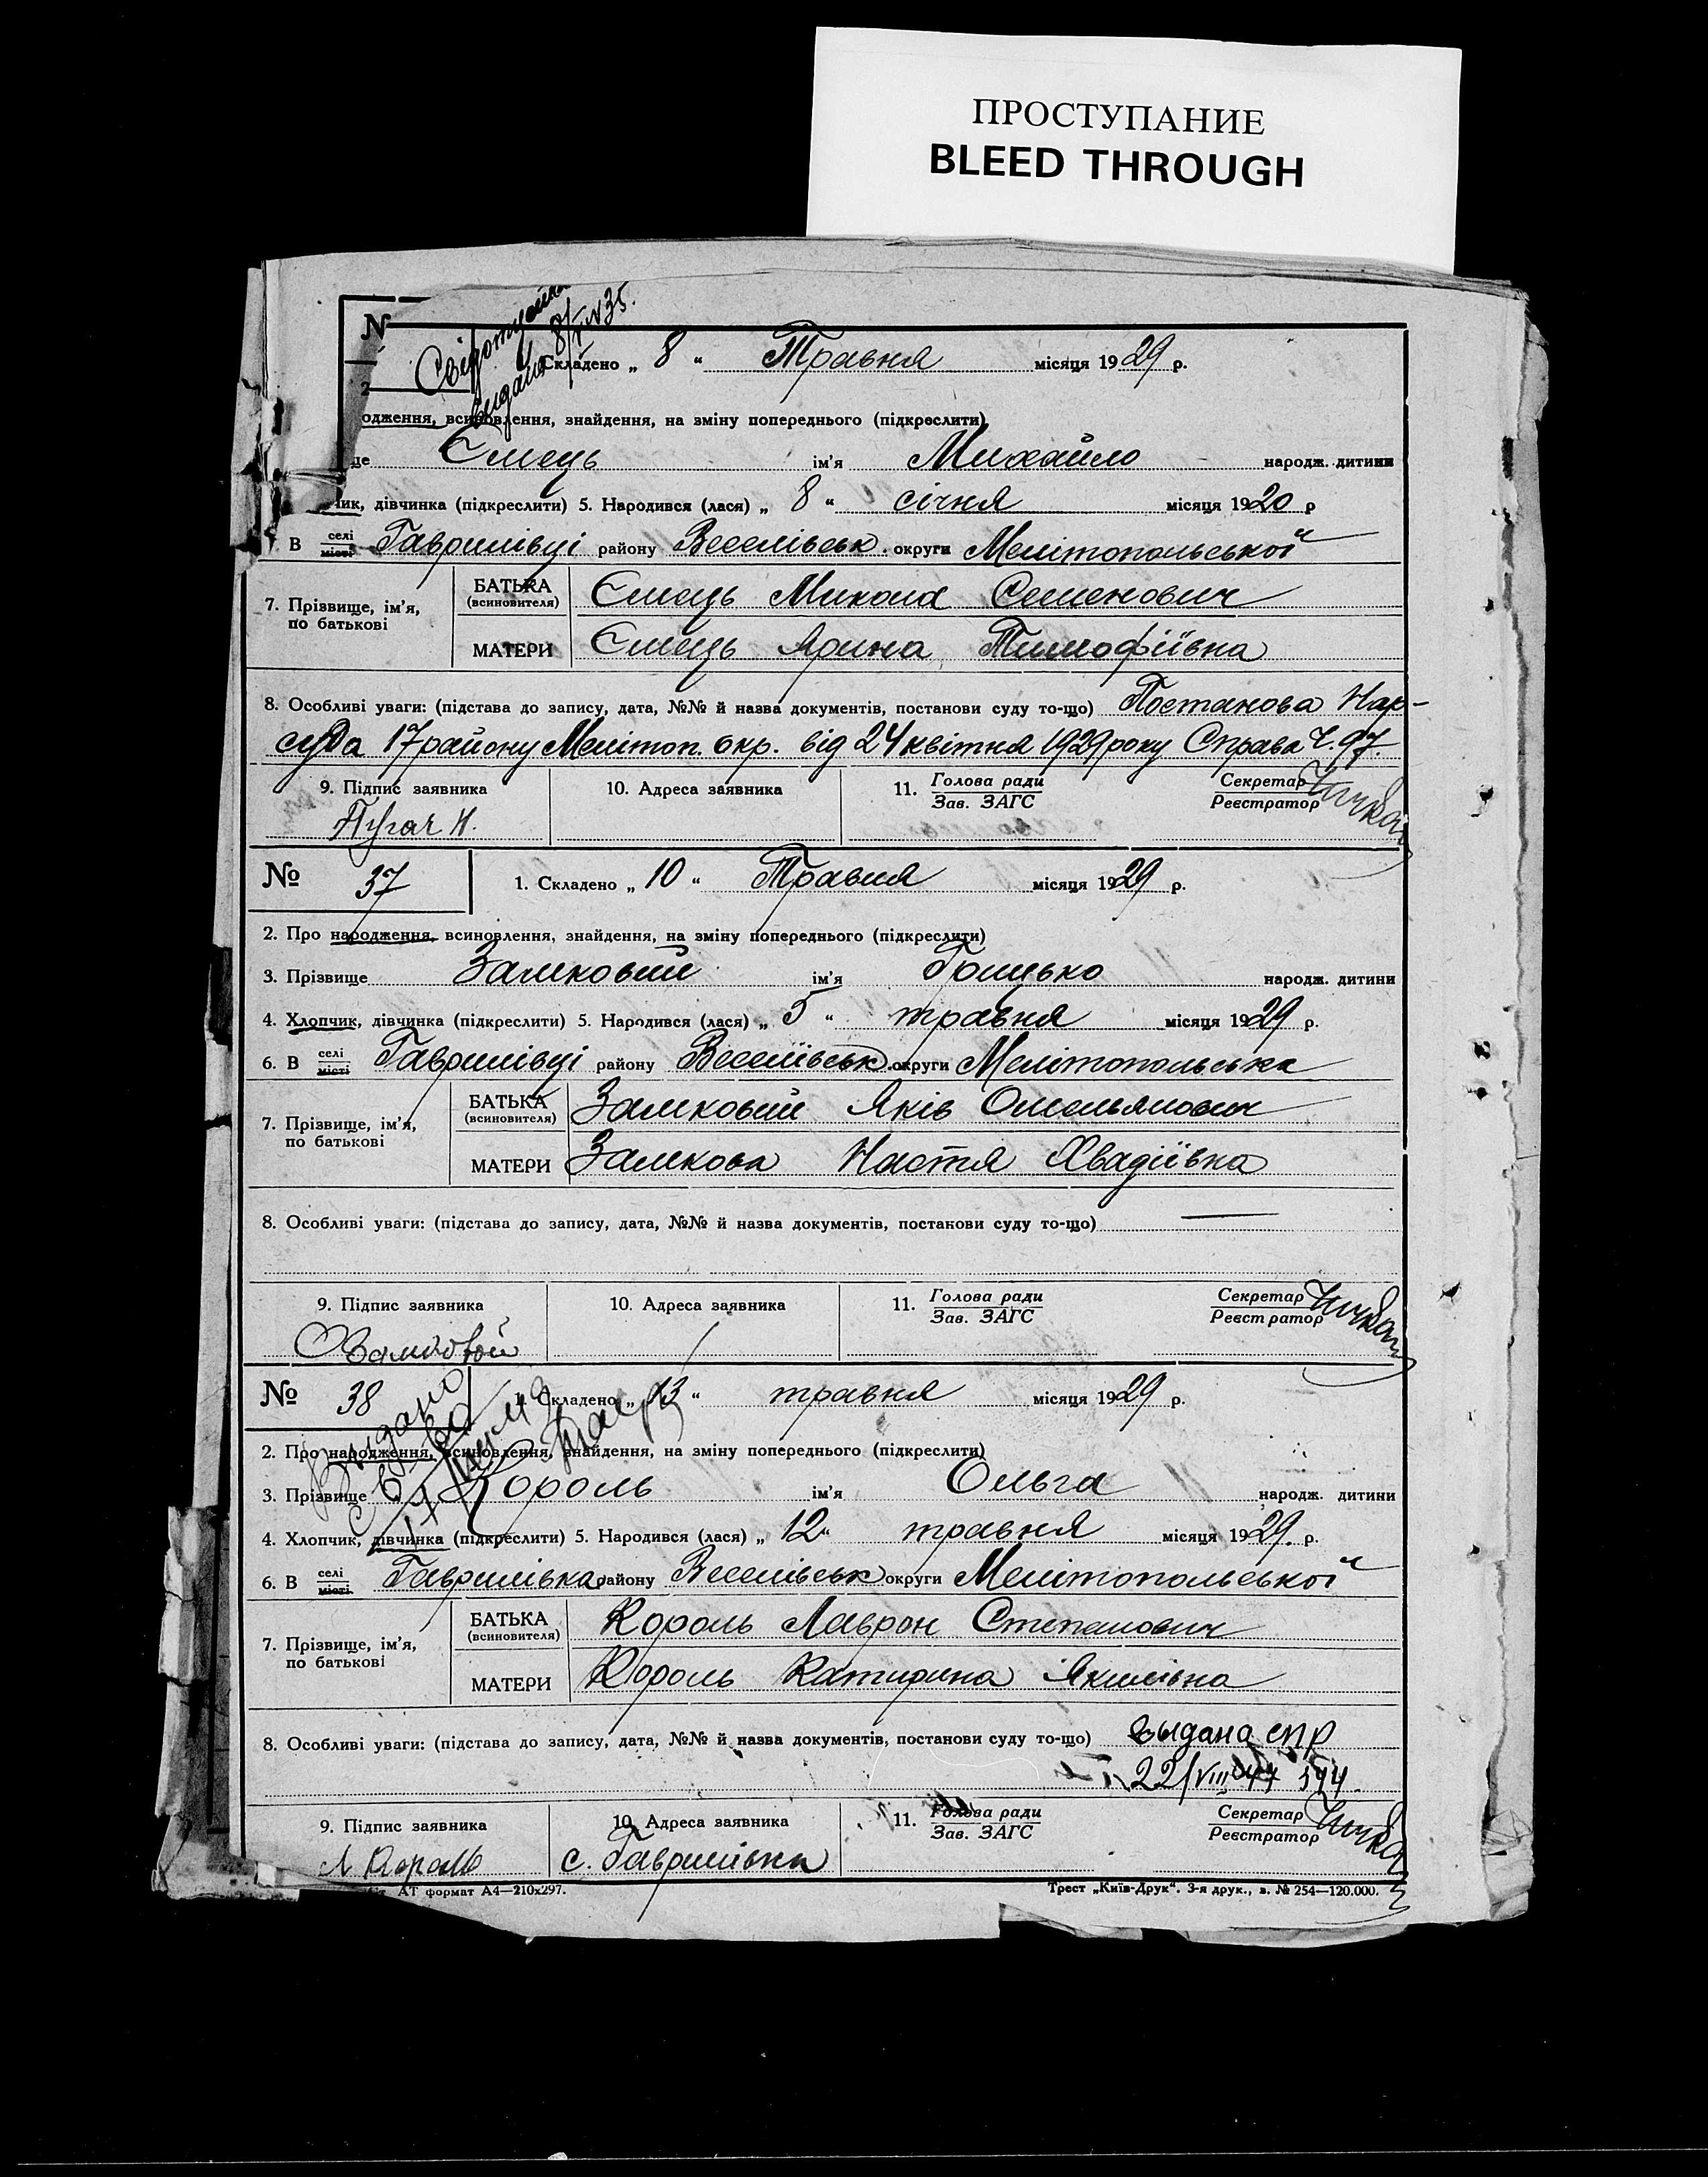 ПРОСТУПАНИЕ
BLEED THROUGH
N
Свідоцтво
видано 8/IV 35.
Складено „ 8 “ Травня місяця 1929 р.
одження, всиновлення, знайдення, на зміну попереднього (підкреслити)
ще Ємець ім'я Михайло народж. дитини
чик, дівчинка (підкреслити) 5. Народився (лася) „ 8 “ січня місяця 1920 р
В селі місті Гаврилівці району Веселівськ. округи Мелітопольської
7. Прізвище, ім'я, по батькові
БАТЬКА (всиновителя) Ємець Микола Семенович
МАТЕРИ Ємець Ярина Тимофіївна
8. Особливі уваги: (підстава до запису, дата, №№ й назва документів, постанови суду то-що) Постанова Нар-
суда 17 району Мелітоп. окр. від 24 квітня 1929 року Справа Ч. 97.
9. Підпис заявника 10. Адреса заявника 11. Голова ради Зав. ЗАГС Секретар Реєстратор
Пугач Н.
№ 37 1. Складено „ 10 “ Травня місяця 1929 р.
2. Про народження, всиновлення, знайдення, на зміну попереднього (підкреслити)
3. Прізвище Замковий ім'я Грицько народж. дитини
4. Хлопчик, дівчинка (підкреслити) 5. Народився (лася) „ 5 “ травня місяця 1929 р.
6. В селі місті Гаврилівці району Веселівськ. округи Мелітопольська
7. Прізвище, ім'я, по батькові
БАТЬКА (всиновителя) Замковий Яків Омельянович
МАТЕРИ Замкова Настя Хвадіївна
8. Особливі уваги: (підстава до запису, дата, №№ й назва документів, постанови суду то-що) —
9. Підпис заявника 10. Адреса заявника 11. Голова ради Зав. ЗАГС Секретар Реєстратор
Замковой
№ 38 1. Складено „ 13 “ травня місяця 1929 р.
Видано
2. Про народження, всиновлення, знайдення, на зміну попереднього (підкреслити)
3. Прізвище Король ім'я Ольга народж. дитини
4. Хлопчик, дівчинка (підкреслити) 5. Народився (лася) „ 12 “ травня місяця 1929. р.
6. В селі місті Гаврилівка району Веселівськ округи Мелітопольської
7. Прізвище, ім'я, по батькові
БАТЬКА (всиновителя) Король Лаврон Степанович
МАТЕРИ Король Катирина Якимівна
8. Особливі уваги: (підстава до запису, дата, №№ й назва документів, постанови суду то-що) выдана спр
22/VIII 47
9. Підпис заявника 10. Адреса заявника 11. Голова ради Зав. ЗАГС Секретар Реєстратор
Л Король с. Гаврилівка
АТ формат А4—210х297. Трест „Київ-Друк“. 3-я друк., з. № 254—120.000.